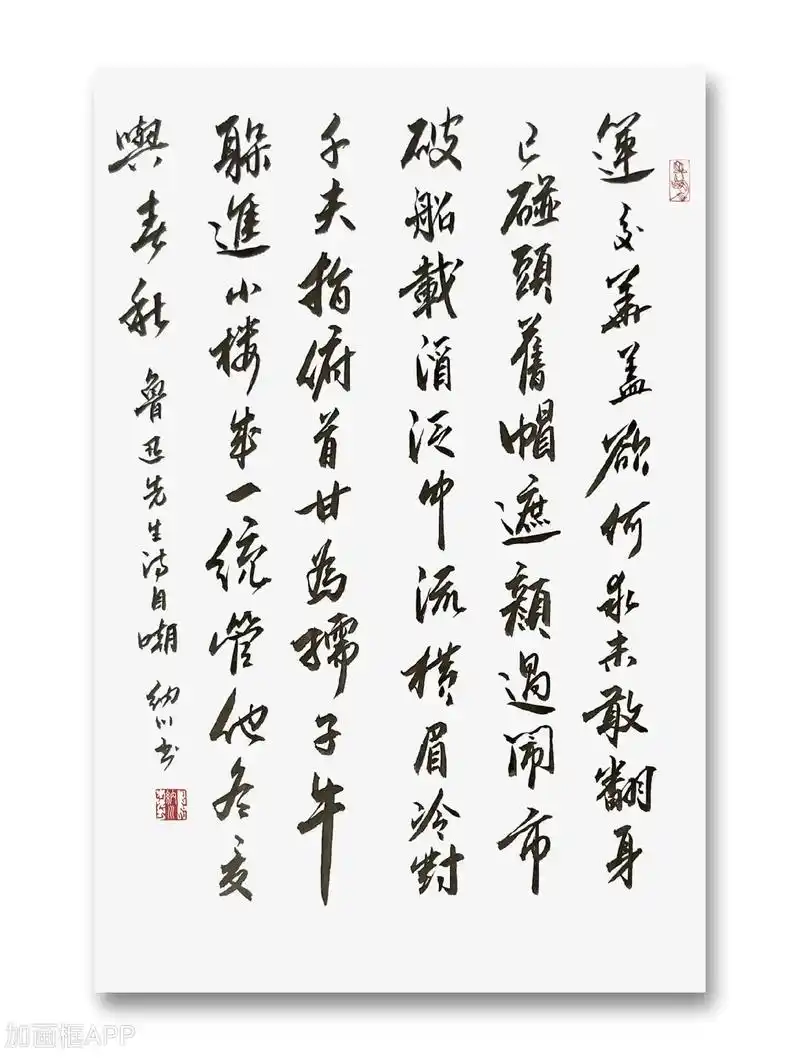 運交華蓋欲何求未敢翻身
已碰頭舊帽遮顏過鬧市
破船載酒泛中流横眉冷對
千夫指俯首甘為孺子牛
躲進小楼成一統管他冬夏
與春秋
魯迅先生诗自嘲 納川书
加画框APP